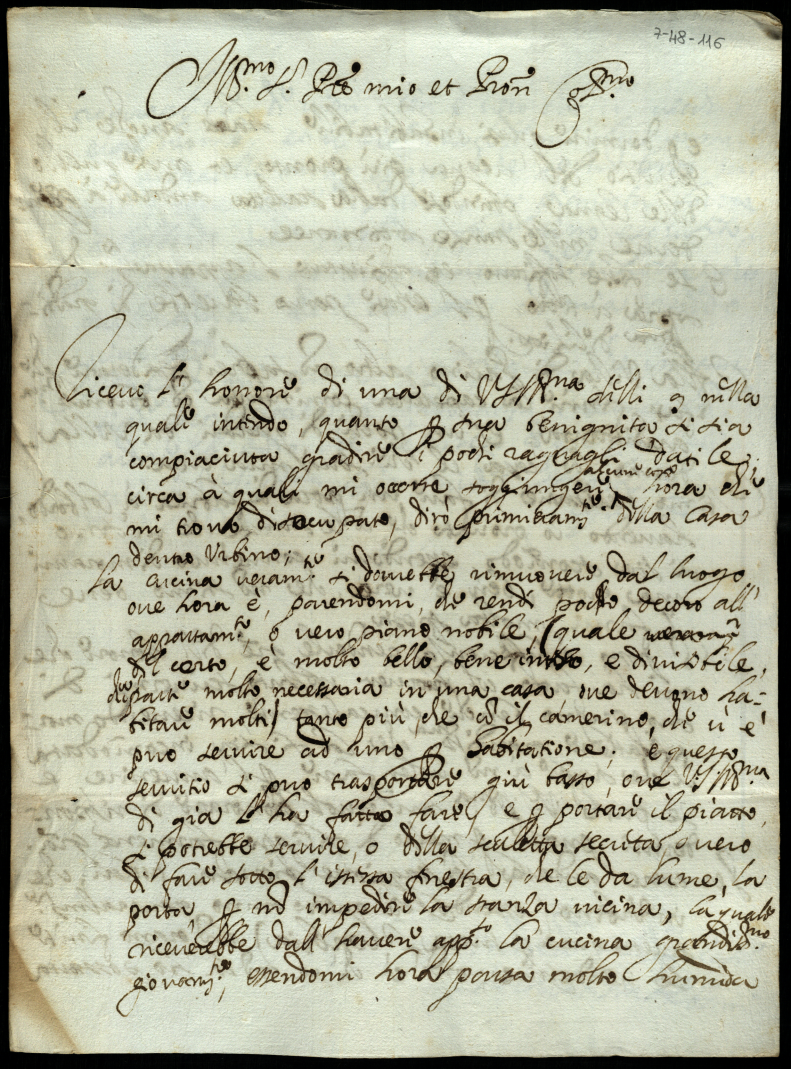 7-48-116
Ill.mo S.r P̄ne mio et Pron̄ Oss.mo
Ricevo l' honore di una di VS Ill.ma delli 9 nella
quale intendo, quanto p sua benignità si sia
compiaciuta gradire i pochi raguagli datile;
circa à quali mi occorre soggiungere alcune cose hora che
mi trovo disocupato, dirò primieram.te della Casa
dentro Urbino;
La cucina veram.te si dovrebbe rimuovere dal luogo
ove hora è, parendomi, che rendi poco decoro all'
appartam.to, o vero piano nobile, (quale
del certo, è molto bello, bene inteso, e divisibile,
che parte molto necessaria in una casa ove devono ha-
bitare molti) tanto più, che cō il camerino, che vi è
può servire ad uno p habitatione; e questo
servitio si può trasportare giù basso, ove VS Ill.ma
di già l' ha fatta fare, e p portare il piatto,
si potrebbe servire, o della scaletta secreta, o vero
di fare sotto l' istessa finestra, che le da lume, la
porta p nō impedire la stanza vicina, la quale
riceverebbe dall' havere app.o la cucina grandiss.mo
giovam.to, essendomi hora parsa molto humida